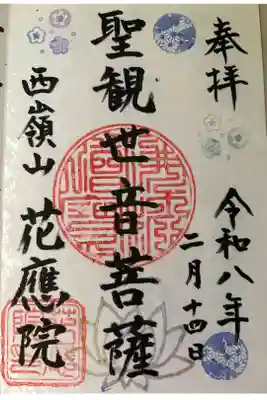 奉拝
令和八年
二月十四日
聖観世音菩薩
西嶺山
花應院